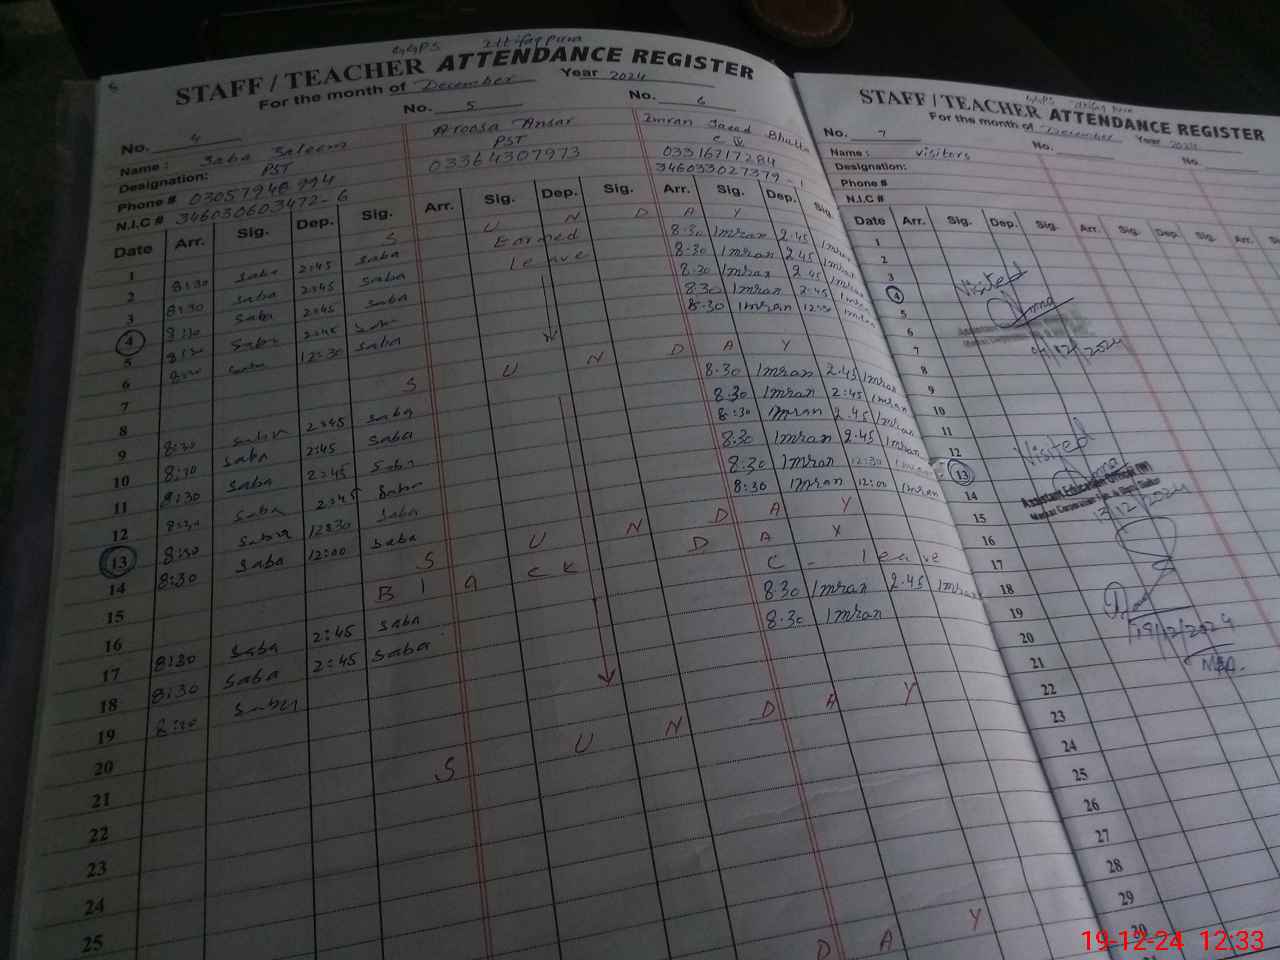 GGPS Ittifaqpura
STAFF / TEACHER ATTENDANCE REGISTER
For the month of December Year 2024
No. 4 No. 5 No. 6
Name: Saba Saleem Aroosa Ansar Imran Saeed Bhutta
Designation: PST PST C IV
Phone # 03364307973 03316717284
N.I.C# 346030603472-6 346033027379-1
Date Arr. Sig. Dep. Sig. Arr. Sig. Dep. Sig. Arr. Sig. Dep. Sig.
1 S U N D A Y
2 8:30 Saba 2:45 Saba Earned 8:30 Imran 2:45 Imran
3 8:30 Saba 2:45 Saba leave 8:30 Imran 2:45 Imran
4 8:30 Saba 2:45 Saba 8:30 Imran 2:45 Imran
5 8:30 Saba 2:45 Saba 8:30 Imran 2:45 Imran
6 8:30 Saba 12:30 Saba 8:30 Imran 12:30 Imran
7
8 S U N D A Y
9 8:30 Saba 2:45 Saba 8:30 Imran 2:45 Imran
10 8:30 Saba 2:45 Saba 8:30 Imran 2:45 Imran
11 8:30 Saba 2:45 Saba 8:30 Imran 2:45 Imran
12 8:30 Saba 2:45 Saba 8:30 Imran 2:45 Imran
13 8:30 Saba 12:30 Saba 8:30 Imran 12:30 Imran
14 8:30 Saba 12:00 Saba 8:30 Imran 12:00 Imran
15 S U N D A Y
16 D A Y C - leave
17 8:30 Saba 2:45 Saba
18 8:30 Saba 2:45 Saba 8:30 Imran 2:45 Imran
19 8:30 Saba 8:30 Imran
20
21
22 S U N D A Y
23
24
25
D A Y
STAFF / TEACHER ATTENDANCE REGISTER
For the month of December Year 2024
No. 7 No. No.
Name: Visitors
Designation:
Phone #
N.I.C#
Date Arr. Sig. Dep. Sig. Arr. Sig. Dep. Sig. Arr.
1
2
3
4 Visited
5
6
7
8
9
10
11
12 Visited
13
14 Assistant Education Officer (W)
15 13/12/2024
16
17
18
19
20 19/12/2024
21 MEA.
22
23
24
25
26
27
28
29
30
19-12-24 12:33